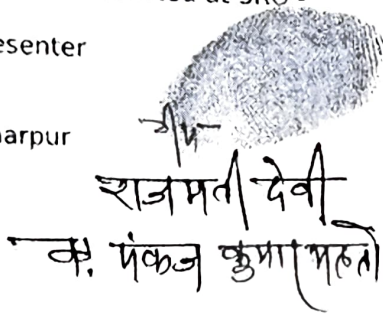 esenter
arpur
टीप
राजमती देवी
क. पंकज कुमार महतो